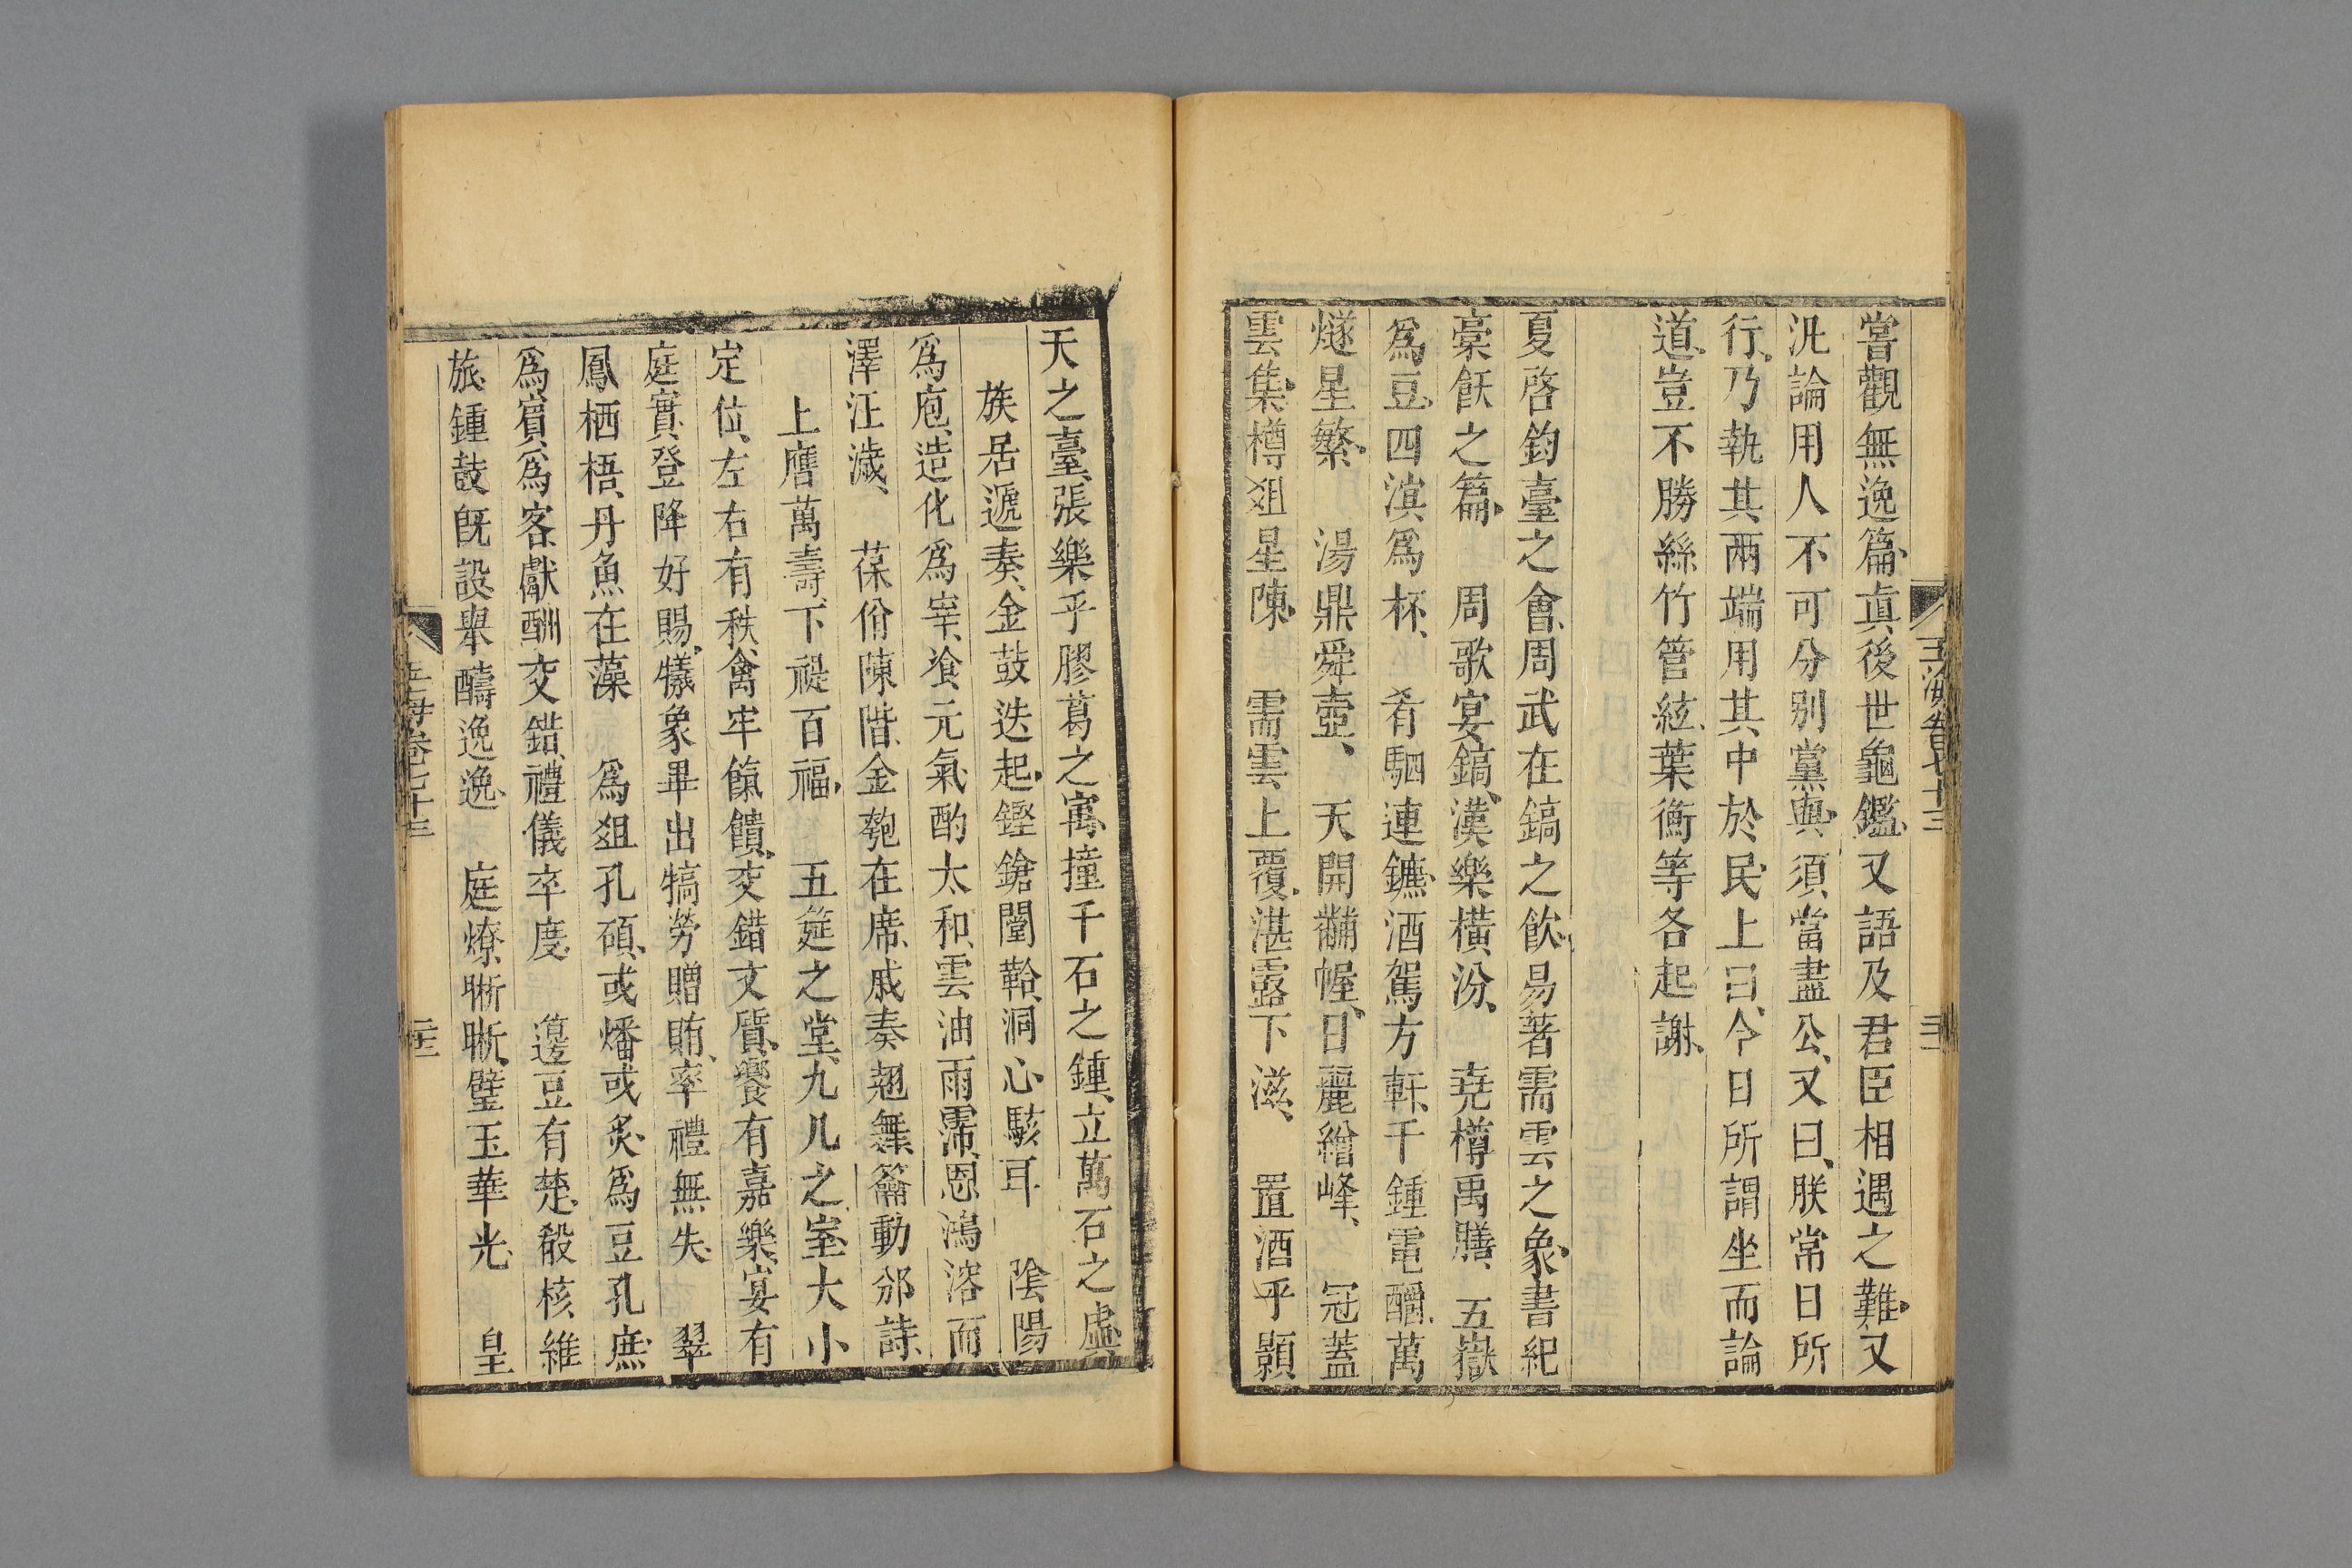 嘗觀無逸篇、眞後世龜鑑、又語及君臣相遇之難、又
汎論用人不可分別黨與、須當盡公、又曰、朕常日所
行、乃執其兩端用其中於民、上曰、今日所謂坐而論
道、豈不勝絲竹管絃、葉衡等各起謝、
夏啓鈞臺之會、周武在鎬之飲、易著需雲之象、書紀
稾飫之篇、 周歌宴鎬、漢樂橫汾、 堯樽禹膳、 五嶽
爲豆、四溟爲杯、 肴駟連鑣、酒駕方軒、千鍾電釂、萬
燧星繁、 湯鼎舜壺、 天開黼幄、日麗繒峰、 冠蓋
雲集、樽俎星陳、 需雲上覆、湛露下滋、 置酒乎顥
天之臺、張樂乎膠葛之㝢、撞千石之鍾、立萬石之虡、
族居遞奏、金鼓迭起、鏗鎗闛鞈、洞心駭耳 陰陽
爲庖、造化爲宰、飡元氣、酌太和、雲油雨霈、恩鴻溶而
澤汪濊、 葆佾陳階、金匏在席、戚奏翹舞、籥動邠詩、
上譍萬壽、下禔百福、 五筵之堂、九几之室、大小
定位、左右有秩、禽牢餼饋、交錯文質、饗有嘉樂、宴有
庭實、登降好賜、犧象畢出、犒勞贈賄、率禮無失、 翠
鳳栖梧、丹魚在藻 爲俎孔碩、或燔或炙、爲豆孔庶、
爲賓爲客、獻酬交錯、禮儀卒度、 籩豆有楚、殽核維
旅、鍾鼓旣設、舉醻逸逸、 庭燎晣晣、璧玉華光、 皇
玉海卷七十三 三十三
玉海卷七十三